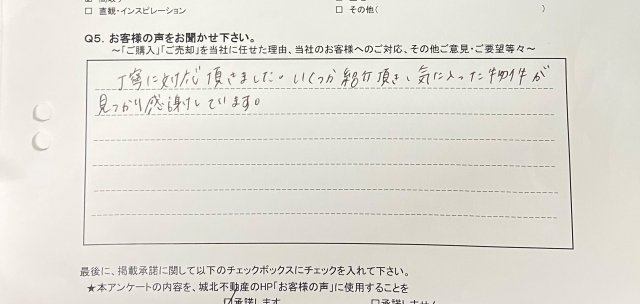 □ 直観・インスピレーション □ その他( )
Q5. お客様の声をお聞かせ下さい。
～「ご購入」「ご売却」を当社に任せた理由、当社のお客様へのご対応、その他ご意見・ご要望等々～
丁寧に対応頂きました。いくつか紹介頂き、気に入った物件が
見つかり感謝しています。
最後に、掲載承諾に関して以下のチェックボックスにチェックを入れて下さい。
★本アンケートの内容を、城北不動産のHP「お客様の声」に使用することを
☑承諾します □承諾しません